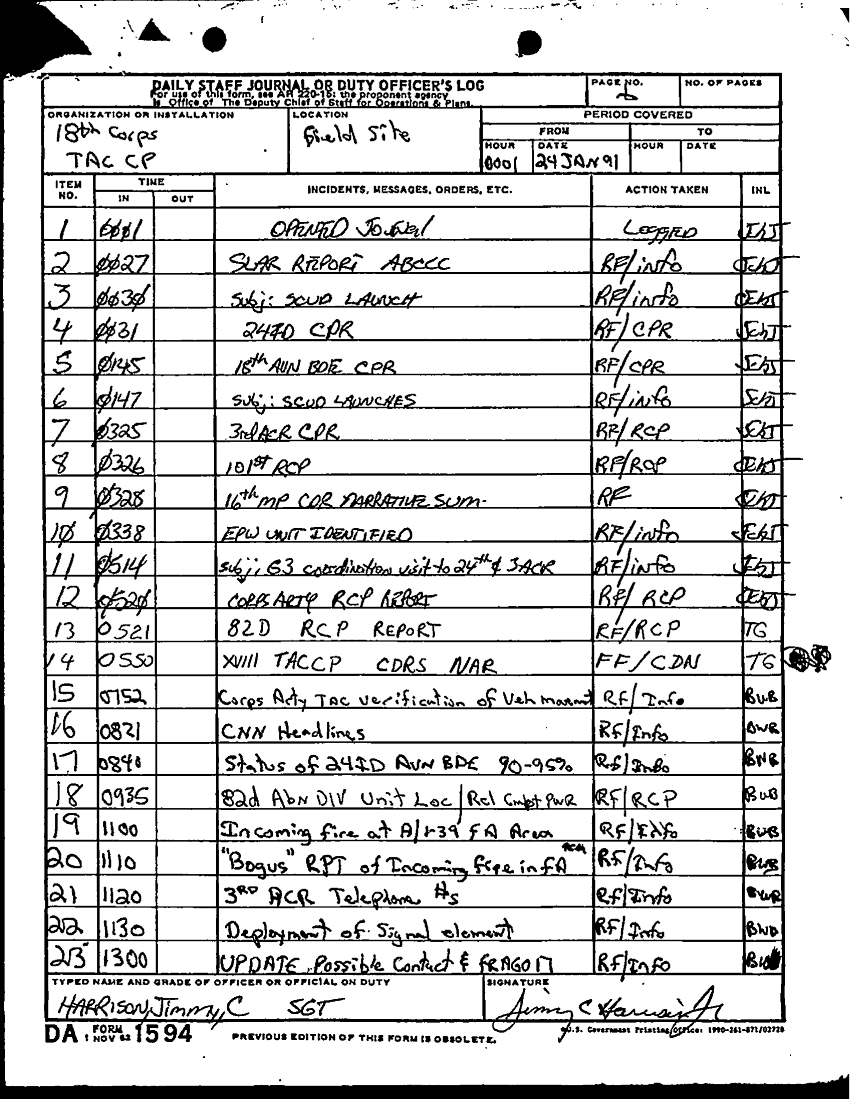 DAILY STAFF JOURNAL OR DUTY OFFICER'S LOG
For use of this form, see AR 220-15; the proponent agency
is Office of The Deputy Chief of Staff for Operations & Plans.
PAGE NO.
NO. OF PAGES
ORGANIZATION OR INSTALLATION
18th Corps
TAC CP
LOCATION
Field Site
PERIOD COVERED
FROM TO
HOUR DATE HOUR DATE
0001 24 JAN 91
ITEM NO. TIME IN OUT INCIDENTS, MESSAGES, ORDERS, ETC. ACTION TAKEN INL
1 0001 OPENED JOURNAL LOGGED
2 0027 SLAR REPORT ABCCC RF/info
3 0030 Subj: SCUD LAUNCH RF/info
4 0031 24ID CPR RF/CPR
5 0145 18th AVN BDE CPR RF/CPR
6 0147 Subj: SCUD LAUNCHES RF/info
7 0325 3rd ACR CPR RF/RCP
8 0326 101st RCP RF/RCP
9 0328 16th MP CDR NARRATIVE SUM- RF
10 0338 EPW UNIT IDENTIFIED RF/info
11 0514 Subj; G3 coordination visit to 24th & 3ACR RF/info
12 0520 CORPS ARTY RCP REPORT RF/RCP
13 0521 82D RCP REPORT RF/RCP TG
14 0550 XVIII TACCP CDRS NAR FF/CDN TG
15 0752 Corps Arty TAC verification of Veh RF/Info BWB
16 0821 CNN Headlines RF/Info BWB
17 0840 Status of 24ID AVN BDE 90-95% RF/Info BWB
18 0935 82d Abn DIV Unit Loc/Rel Cmbt PWR RF/RCP BWB
19 1100 Incoming fire at A/1-39 FA Area RF/Info BWB
20 1110 "Bogus" RPT of Incoming fire in FA AREA RF/Info BWB
21 1120 3RD ACR Telephone #s RF/Info BWB
22 1130 Deployment of Signal element RF/Info BWB
23 1300 UPDATE Possible Contact & FRAGO 17 RF/Info
TYPED NAME AND GRADE OF OFFICER OR OFFICIAL ON DUTY
HARRISON, Jimmy, C SGT
SIGNATURE
Jimmy C Harrison Jr
DA FORM 1 NOV 62 1594
PREVIOUS EDITION OF THIS FORM IS OBSOLETE.
U.S. Government Printing Office: 1990-261-871/02728